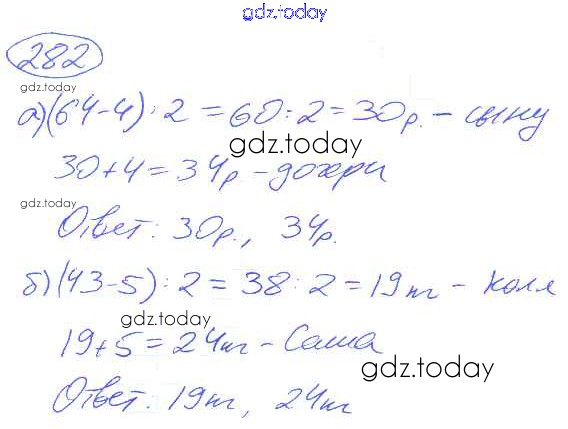 gdz.today
282
gdz.today
а) (64-4) : 2 = 60 : 2 = 30р. - сыну
gdz.today
30+4 = 34р - дочери
gdz.today
Ответ: 30р., 34р.
б) (43-5) : 2 = 38 : 2 = 19м - Коля
gdz.today
19+5 = 24м - Саша
gdz.today
Ответ: 19м, 24м